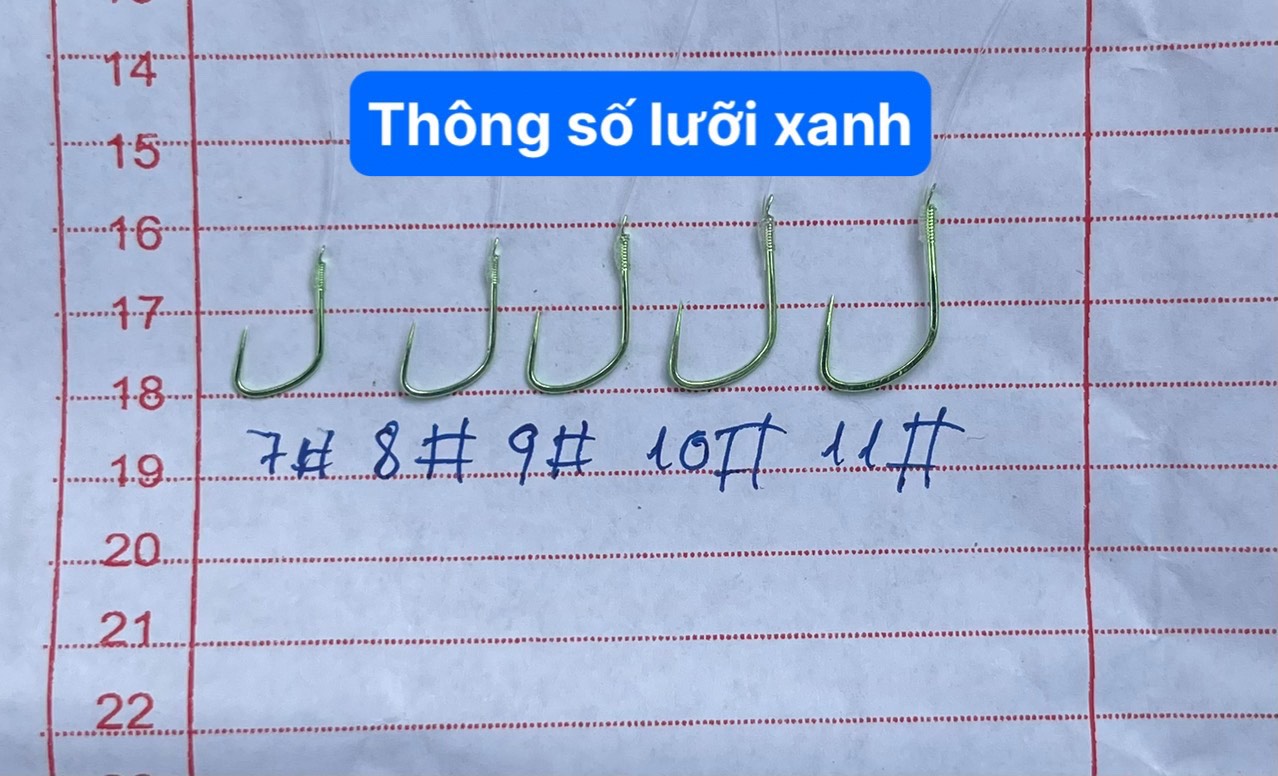 14
Thông số lưỡi xanh
15
16
17
18
7# 8# 9# 10# 11#
19
20
21
22